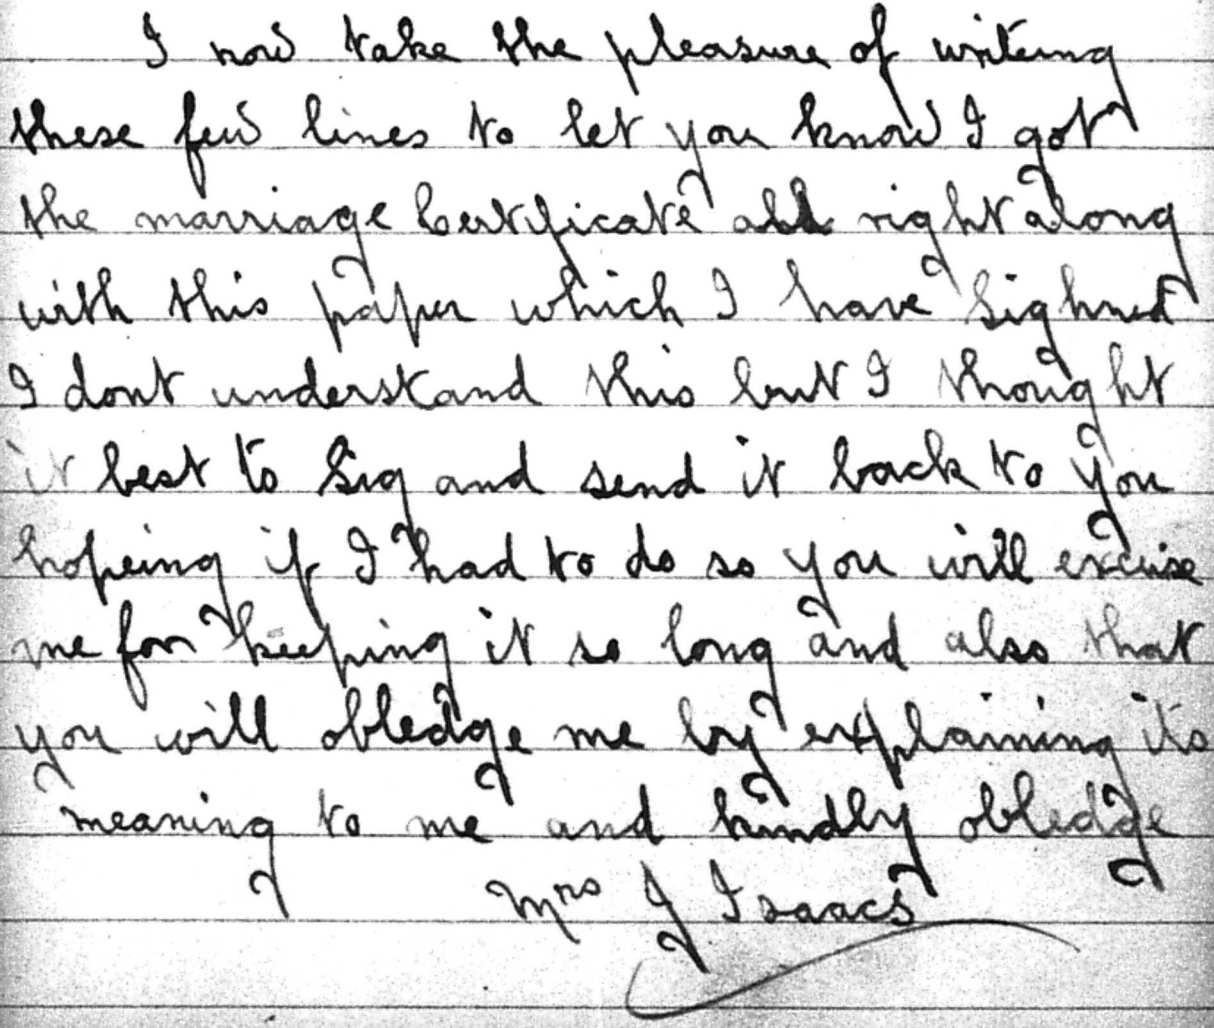 I now take the pleasure of writeing
these few lines to let you know I got
the marriage Certificate all right along
with this paper which I have Sighned
I dont understand this but I thought
it best to Sig and send it back to you
hopeing if I had to do so you will excuse
me for keeping it so long and also that
you will obledge me by explaining its
meaning to me and kindly obledge
Mrs J Isaacs